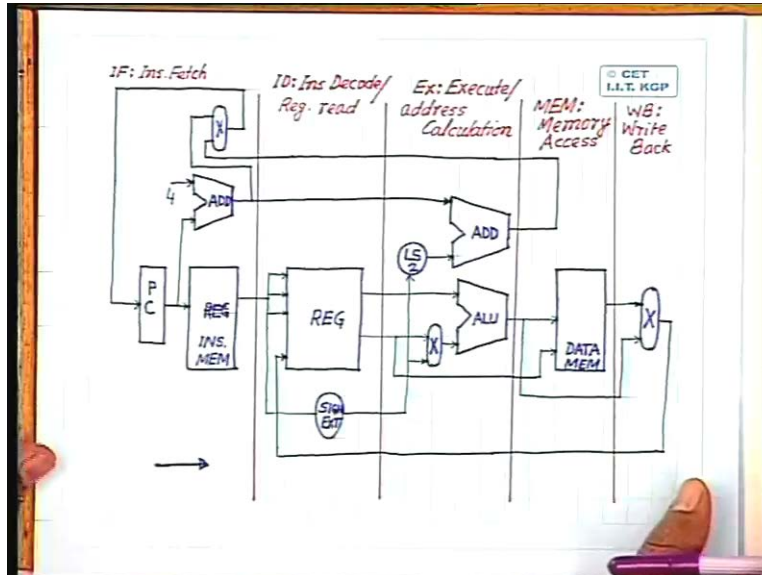 IF: Ins. Fetch
ID: Ins Decode/
Reg. read
Ex: Execute/
address
Calculation
MEM:
Memory
Access
WB:
Write
Back
© CET
I.I.T. KGP
X
4
ADD
ADD
LS
2
P
C
INS.
MEM
REG
ALU
X
DATA
MEM
X
SIGN
EXT